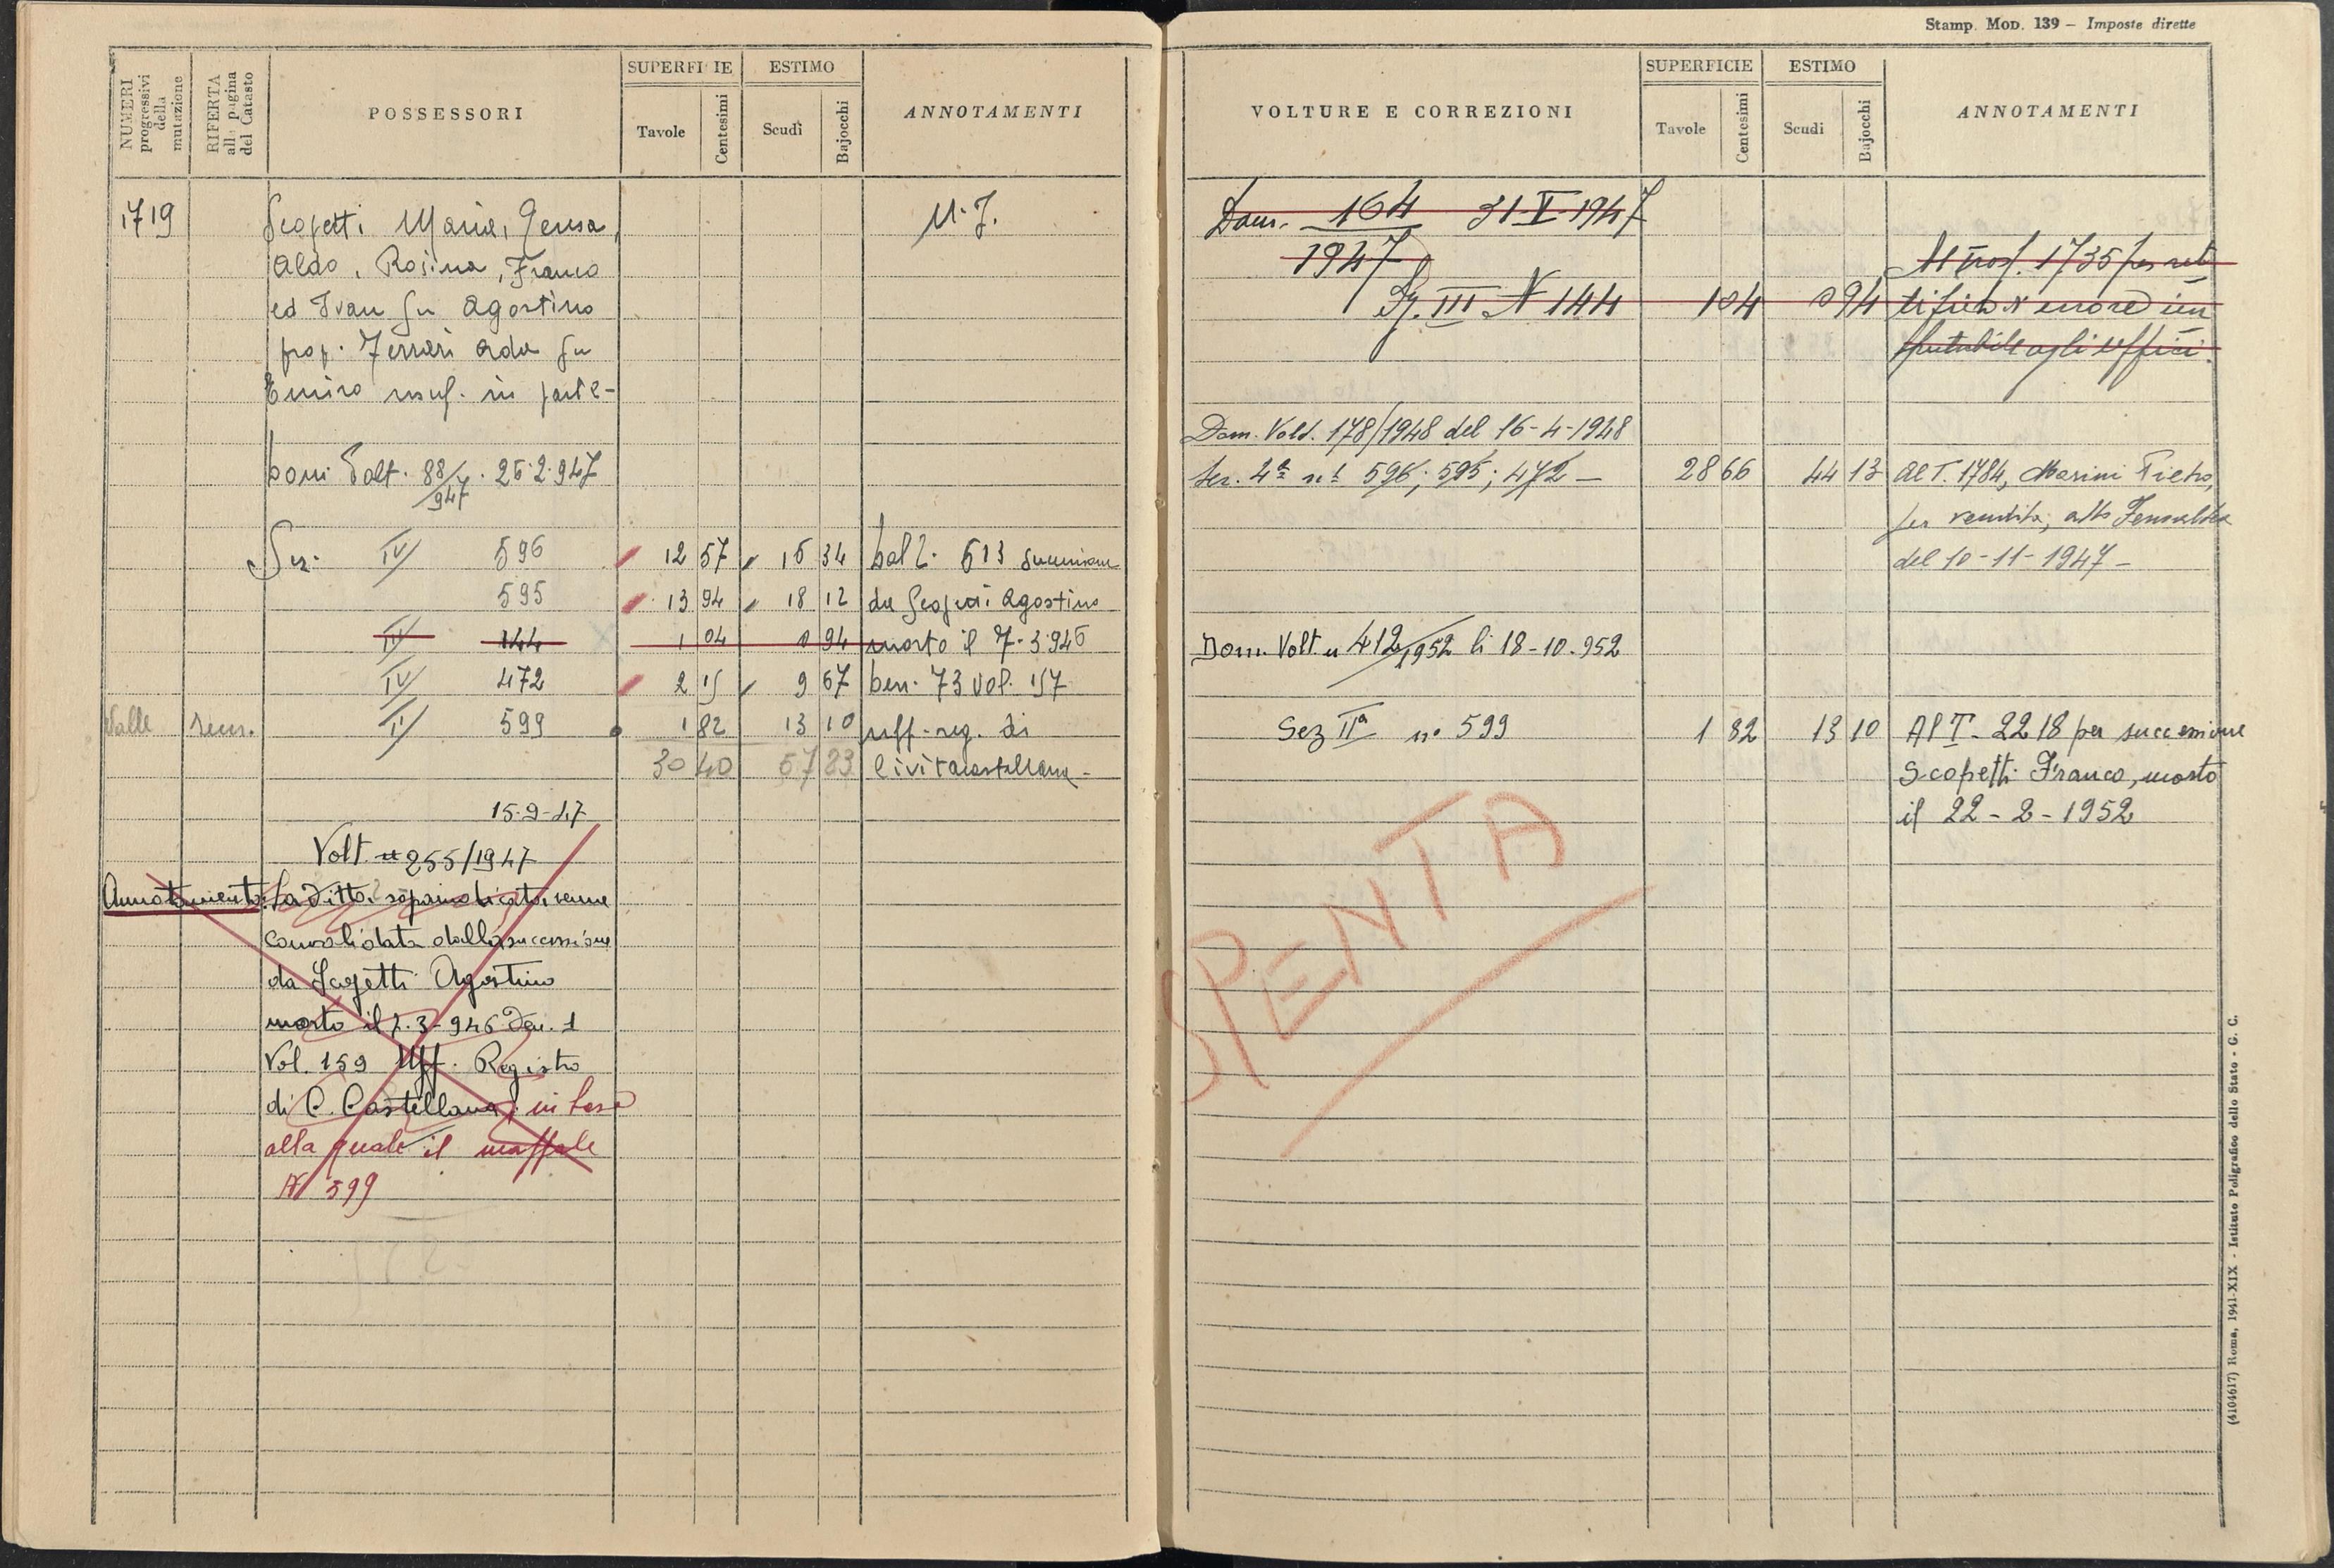 NUMERI progressivi della mutazione
RIFERTA alla pagina del Catasto
POSSESSORI
SUPERFICIE
Tavole
Centesimi
ESTIMO
Scudi
Bajocchi
ANNOTAMENTI
1719
Scopetti Maria,
Aldo, Rosina, Franco
ed Ivan fu Agostino
prop. Ferrari Ada fu
usuf. in parte-
Dom. Volt. 88/947. 25.2.947
Sez. IV 596 12 57 34 Dal T. 513 successione
595 13 94 18 12 da Scopetti Agostino
IV 144 1 04 0 94 morto il 7.3.946
IV 472 2 15 9 67 den. 73 vol. 157
Valle 599 1 82 13 10 uff. reg. di
30 40 57 23 Civitacastellana-
15-9-47
Volt n 255/1947
Annotamento: La Ditta sopraindicata venne
consolidata dalla successione
da Scopetti Agostino
morto il 7.3-946 Den. 1
Vol. 159 Uff. Registro
di C. Castellana, in base
alla quale il mappale
N 599
Stamp. Mod. 139 – Imposte dirette
VOLTURE E CORREZIONI
SUPERFICIE
Tavole
Centesimi
ESTIMO
Scudi
Bajocchi
ANNOTAMENTI
Dom. 164 31-V-1947
1947
III N 144 1 04 0 94
Al 1735 per ret
tifica errore im
putabile agli uffici.
Dom. Volt. 178/1948 del 16-4-1948
Sez. 4ª nⁱ 596; 595; 472 – 28 66 44 13 Al T. 1784, Marini Pietro,
per vendita, atto
del 10-11-1947-
Dom. Volt. n 412/1952 li 18-10-952
Sez IIª n° 599 1 82 13 10 Al T. 2218 per successione
Scopetti Franco, morto
il 22-2-1952
SPENTA
(4104617) Roma, 1941-XIX - Istituto Poligrafico dello Stato - G. C.